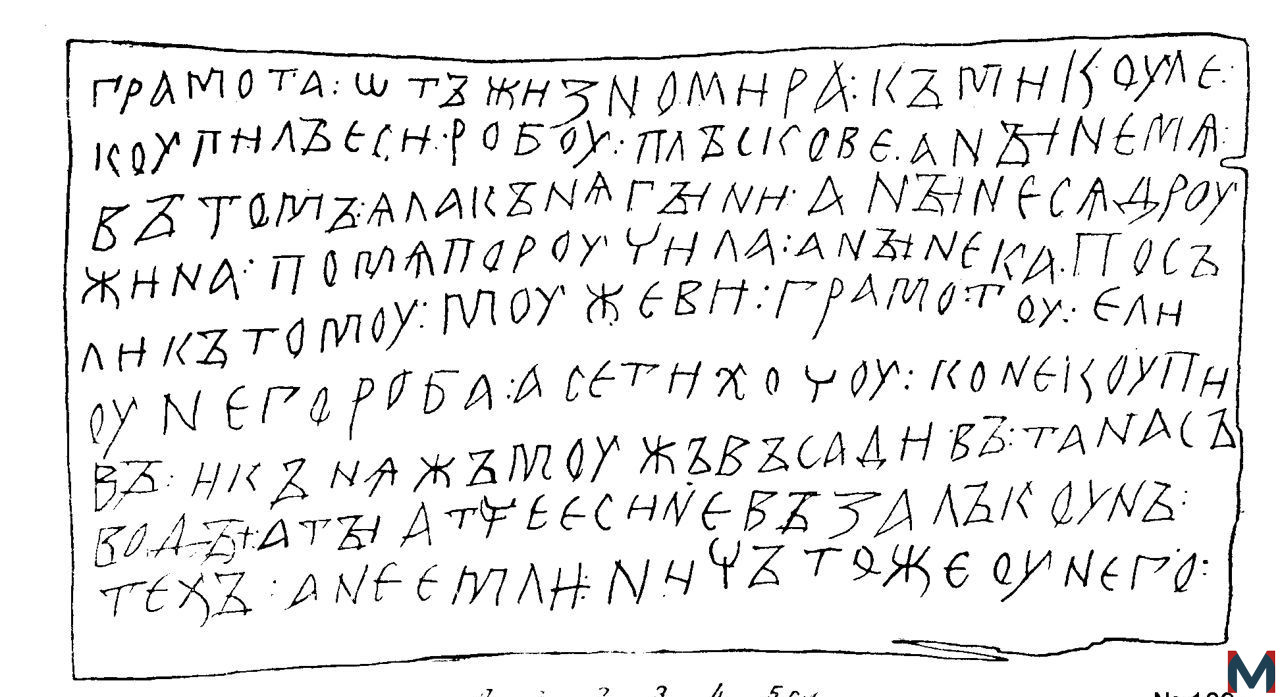 грамота : ѡтъ жизномира : къ микоуле :
коупилъ еси : робоу : плъскове . а нꙑне мѧ :
въ томъ : ѧла кънѧгꙑни : а нꙑне сѧ дроу
жина : по мѧ пороучила : а нꙑне ка . посъ
ли къ томоу : моужеви : грамотоу : ели
оу него роба : а се ти хочоу : коне коупи
въ : и кънѧжъ моужъ въсадивъ : та на съ
водꙑ : а тꙑ атче еси не възалъ коунъ :
техъ : а не емли : ничъто же оу него :